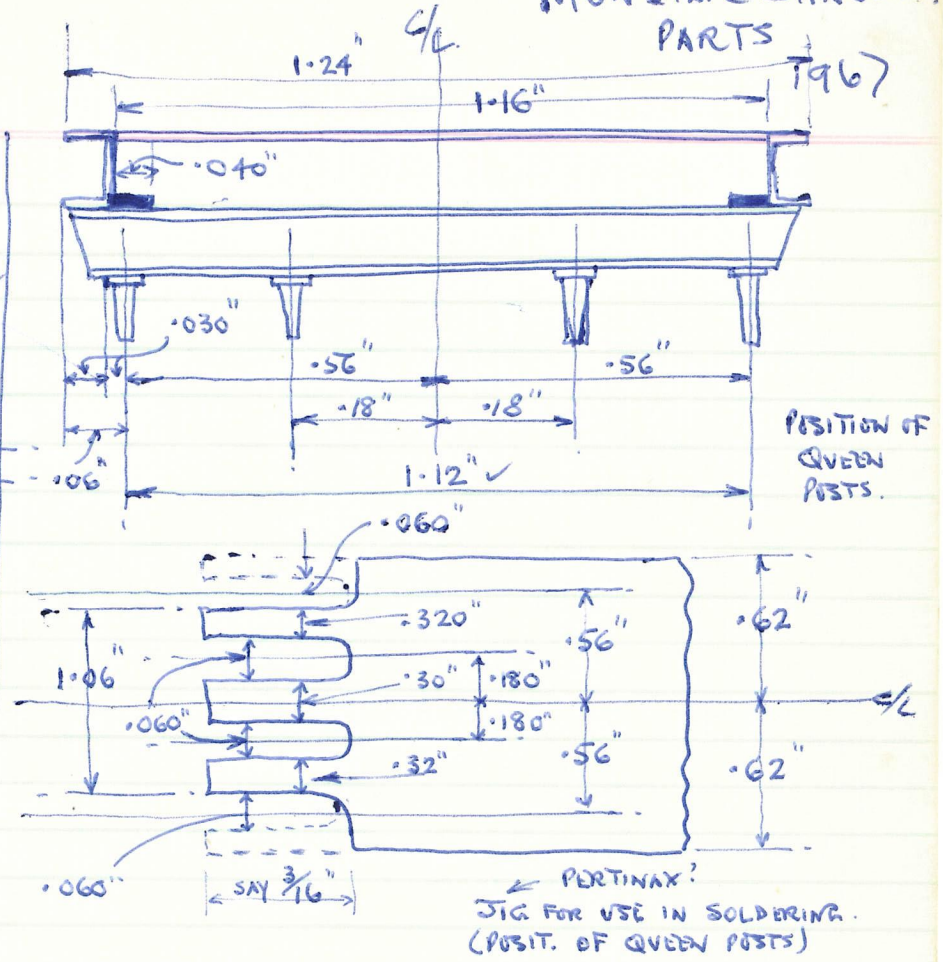 PARTS
1967
C/L
1.24"
1.16"
.040"
.030"
.56"
.56"
.18"
.18"
.06"
1.12" ✓
POSITION OF
QUEEN
POSTS.
.060"
.320"
.56"
.62"
1.06"
.30"
.180"
C/L
.060"
.180"
.32"
.56"
.62"
.060"
SAY 3/16"
PERTINAX?
JIG FOR USE IN SOLDERING.
(POSIT. OF QUEEN POSTS)